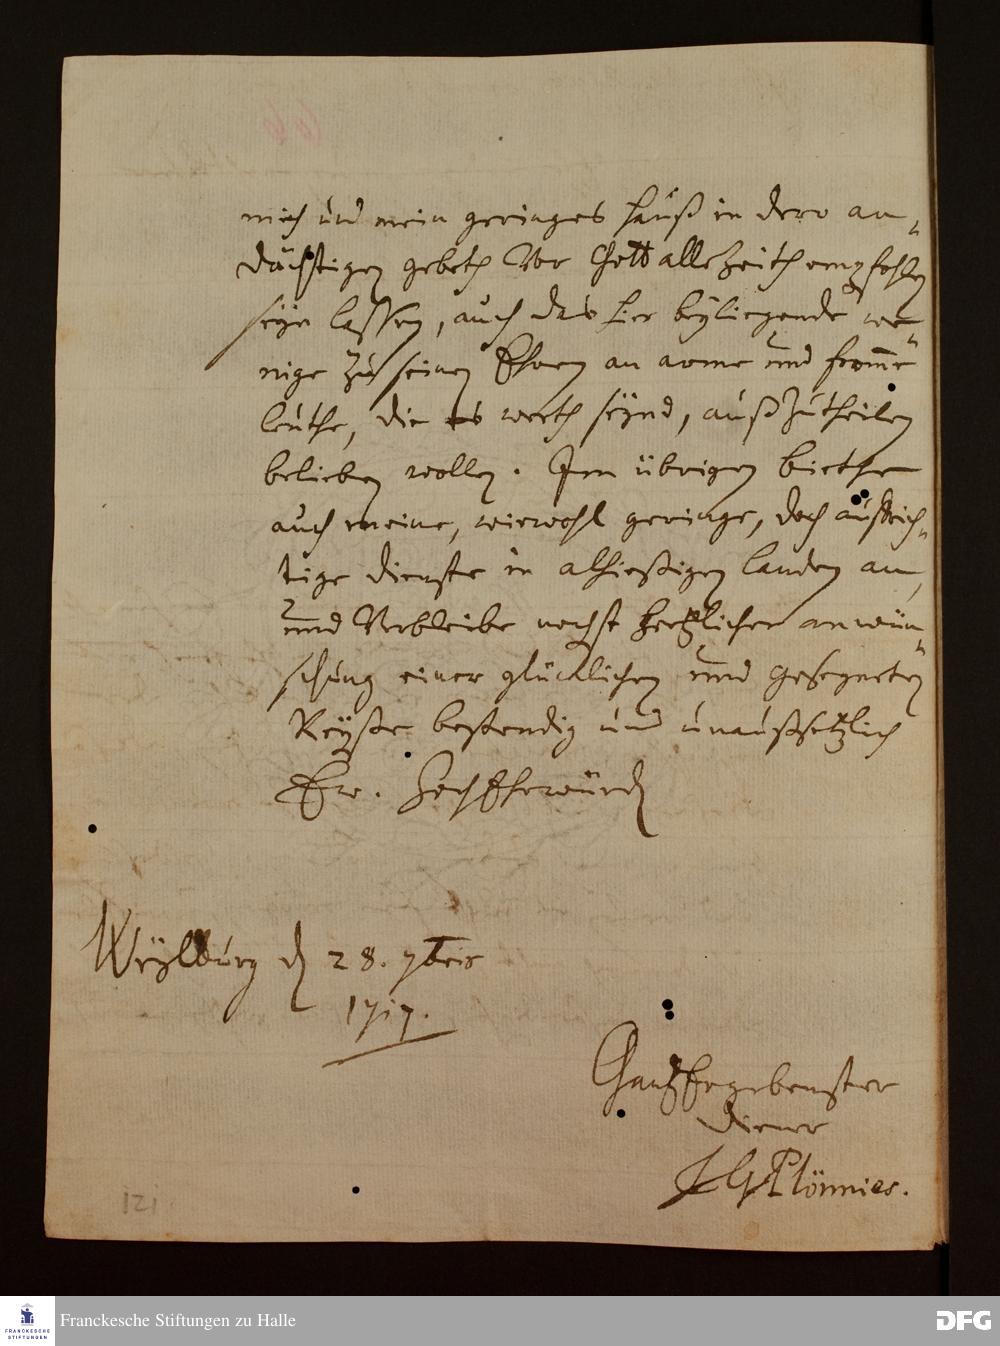 mich und mein geringes hauß in dero an„
dächtigen gebeth Vor Gott allezeith empfohlen
seyn lassen, auch das hier beyliegende we„
nige zu seinen Ehren an arme und from̅e
leuthe, die es werth seynd, außzutheilen
belieben wollen. Im übrigen biethe
auch meine, wiewohl geringe, doch auffrich„
tige dienste in alhießigen landen an,
und Verbleibe nechst hertzlicher anwün„
schung einer glücklichen und gesegneten
Reyße bestendig und unaußsetzlich
Ew. HochEhrwürd
Weylburg d 28. 7bris
1717.
Gantz Ergebenster
diener
J G Plönnies.
121
Franckesche Stiftungen zu Halle
FRANCKESCHE
STIFTUNGEN
DFG